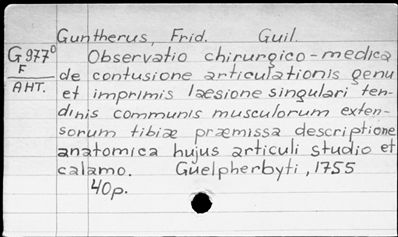 Guntherus, Frid. Guil.
G977⁰ Observatio chirurgico-medica
F de contusione articulationis genu
AHT. et imprimis laesione singulari ten-
dinis communis musculorum exten-
sorum tibiæ præmissa descriptione
anatomica hujus articuli studio et
calamo. Guelpherbyti, 1755
40p.